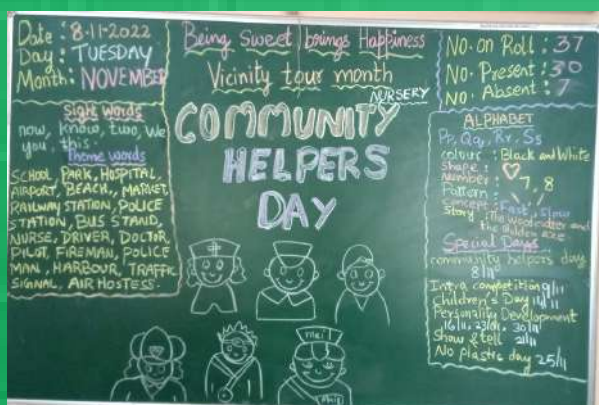 Date : 8.11.2022
Day : TUESDAY
Month : NOVEMBER
Sight words
now, know, two, we
you, this.
Theme words
SCHOOL PARK, HOSPITAL,
AIRPORT, BEACH, MARKET,
RAILWAY STATION, POLICE
STATION, BUS STAND,
NURSE, DRIVER, DOCTOR
PILOT, FIREMAN, POLICE
MAN, HARBOUR, TRAFFIC
SIGNAL, AIR HOSTESS.
Being Sweet brings Happiness
Vicinity tour month
NURSERY
COMMUNITY
HELPERS
DAY
mail
Mail
No. on Roll : 37
No. Present : 30
No. Absent : 7
ALPHABET
Pp, Qq, Rr, Ss
colour : Black and White
shape :
Number : 7, 8
Pattern :
concept : Fast, slow
Story : The woodcutter and
the golden axe
Special Days
community helpers day
8/11
Intra competition 9/11
Children's Day 14/11
Personality Development
16/11, 23/11, 30/11
Show & tell 21/11
No plastic day 25/11